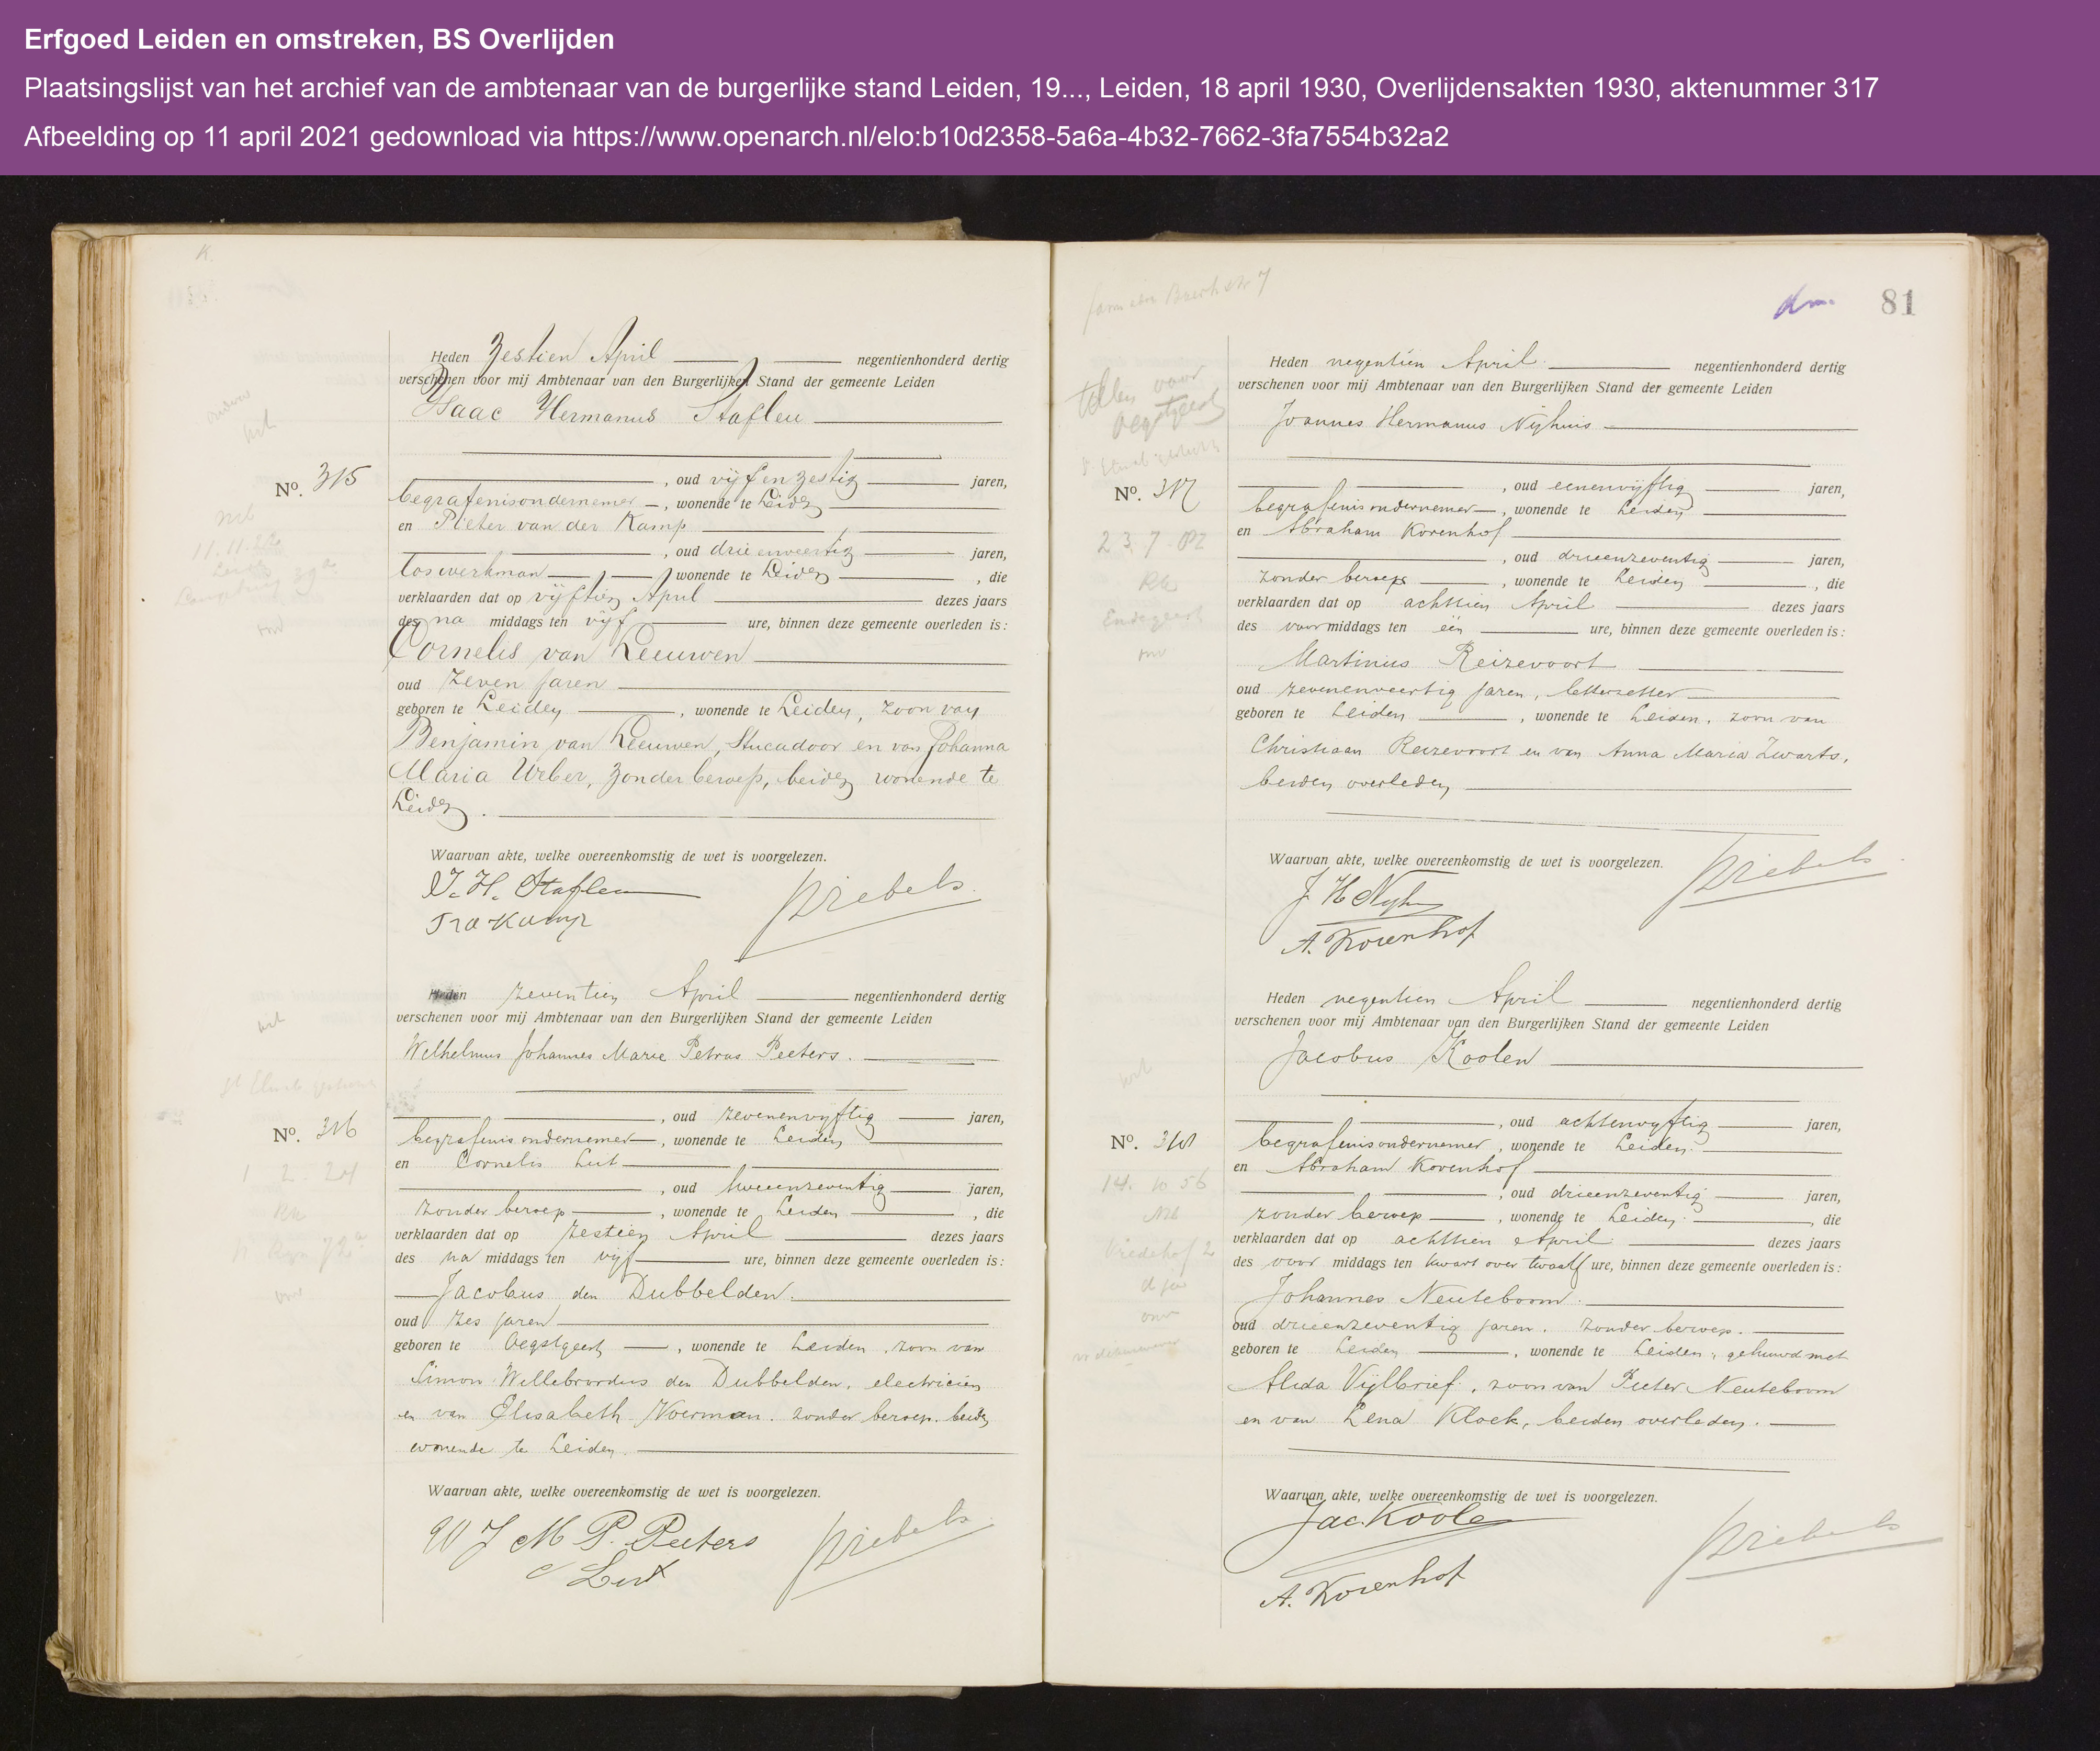 Erfgoed Leiden en omstreken, BS Overlijden
Plaatsingslijst van het archief van de ambtenaar van de burgerlijke stand Leiden, 19..., Leiden, 18 april 1930, Overlijdensakten 1930, aktenummer 317
Afbeelding op 11 april 2021 gedownload via https://www.openarch.nl/elo:b10d2358-5a6a-4b32-7662-3fa7554b32a2
K.
Heden Zestien April negentienhonderd dertig
verschenen voor mij Ambtenaar van den Burgerlijken Stand der gemeente Leiden
Isaac Hermanus Stafleu
No. 315
, oud vijf en zestig jaren,
begrafenisondernemer, wonende te Leiden
en Pieter van der Kamp
, oud drie en veertig jaren,
los werkman, wonende te Leiden, die
verklaarden dat op vijftien April dezes jaars
des na middags ten vijf ure, binnen deze gemeente overleden is:
Cornelis van Leeuwen
oud zeven jaren
geboren te Leiden, wonende te Leiden, zoon van
Benjamin van Leeuwen, Stucadoor en van Johanna
Maria Weber, zonder beroep, beiden wonende te
Leiden.
Waarvan akte, welke overeenkomstig de wet is voorgelezen.
I. H. Stafleu
Heden zeventien April negentienhonderd dertig
verschenen voor mij Ambtenaar van den Burgerlijken Stand der gemeente Leiden
Wilhelmus Johannes Marie Petrus Peeters.
No. 316
, oud zevenenvijftig jaren,
begrafenisondernemer, wonende te Leiden
en Cornelis Lut
, oud tweeenzeventig jaren,
zonder beroep, wonende te Leiden, die
verklaarden dat op zestien April dezes jaars
des na middags ten vijf ure, binnen deze gemeente overleden is:
Jacobus den Dubbelden.
oud zes jaren
geboren te Oegstgeest, wonende te Leiden, zoon van
Simon Willebrordus den Dubbelden, electricien
en van Elisabeth Noerman. zonder beroep. beiden
wonende te Leiden.
Waarvan akte, welke overeenkomstig de wet is voorgelezen.
W J M P. Peeters
81
Heden negentien April negentienhonderd dertig
verschenen voor mij Ambtenaar van den Burgerlijken Stand der gemeente Leiden
Joannes Hermanus Nijhuis
tellen voor
Oegstgeest
No. 317
23.7.82
Endegeest
, oud eenenvijftig jaren,
begrafenisondernemer, wonende te Leiden
en Abraham Kovenhof
, oud drieenzeventig jaren,
zonder beroep, wonende te Leiden, die
verklaarden dat op achttien April dezes jaars
des voormiddags ten één ure, binnen deze gemeente overleden is:
Martinus Reizevoort
oud zevenenveertig jaren, letterzetter
geboren te Leiden, wonende te Leiden, zoon van
Christiaan Reizevoort en van Anna Maria Zwarts,
beiden overleden
Waarvan akte, welke overeenkomstig de wet is voorgelezen.
A. Kovenhof
Heden negentien April negentienhonderd dertig
verschenen voor mij Ambtenaar van den Burgerlijken Stand der gemeente Leiden
Jacobus Koolen
No. 318
14.10 56
, oud achtenvijftig jaren,
begrafenisondernemer, wonende te Leiden.
en Abraham Kovenhof
, oud drieenzeventig jaren,
zonder beroep, wonende te Leiden, die
verklaarden dat op achttien April dezes jaars
des voor middags ten kwart over twaalf ure, binnen deze gemeente overleden is:
Johannes Neuteboom.
oud drieenzeventig jaren. zonder beroep.
geboren te Leiden, wonende te Leiden, gehuwd met
Alida Vijlbrief, zoon van Pieter Neuteboom
en van Lena Kloek, beiden overleden.
Waarvan akte, welke overeenkomstig de wet is voorgelezen.
Jac. Koole
A. Kovenhof